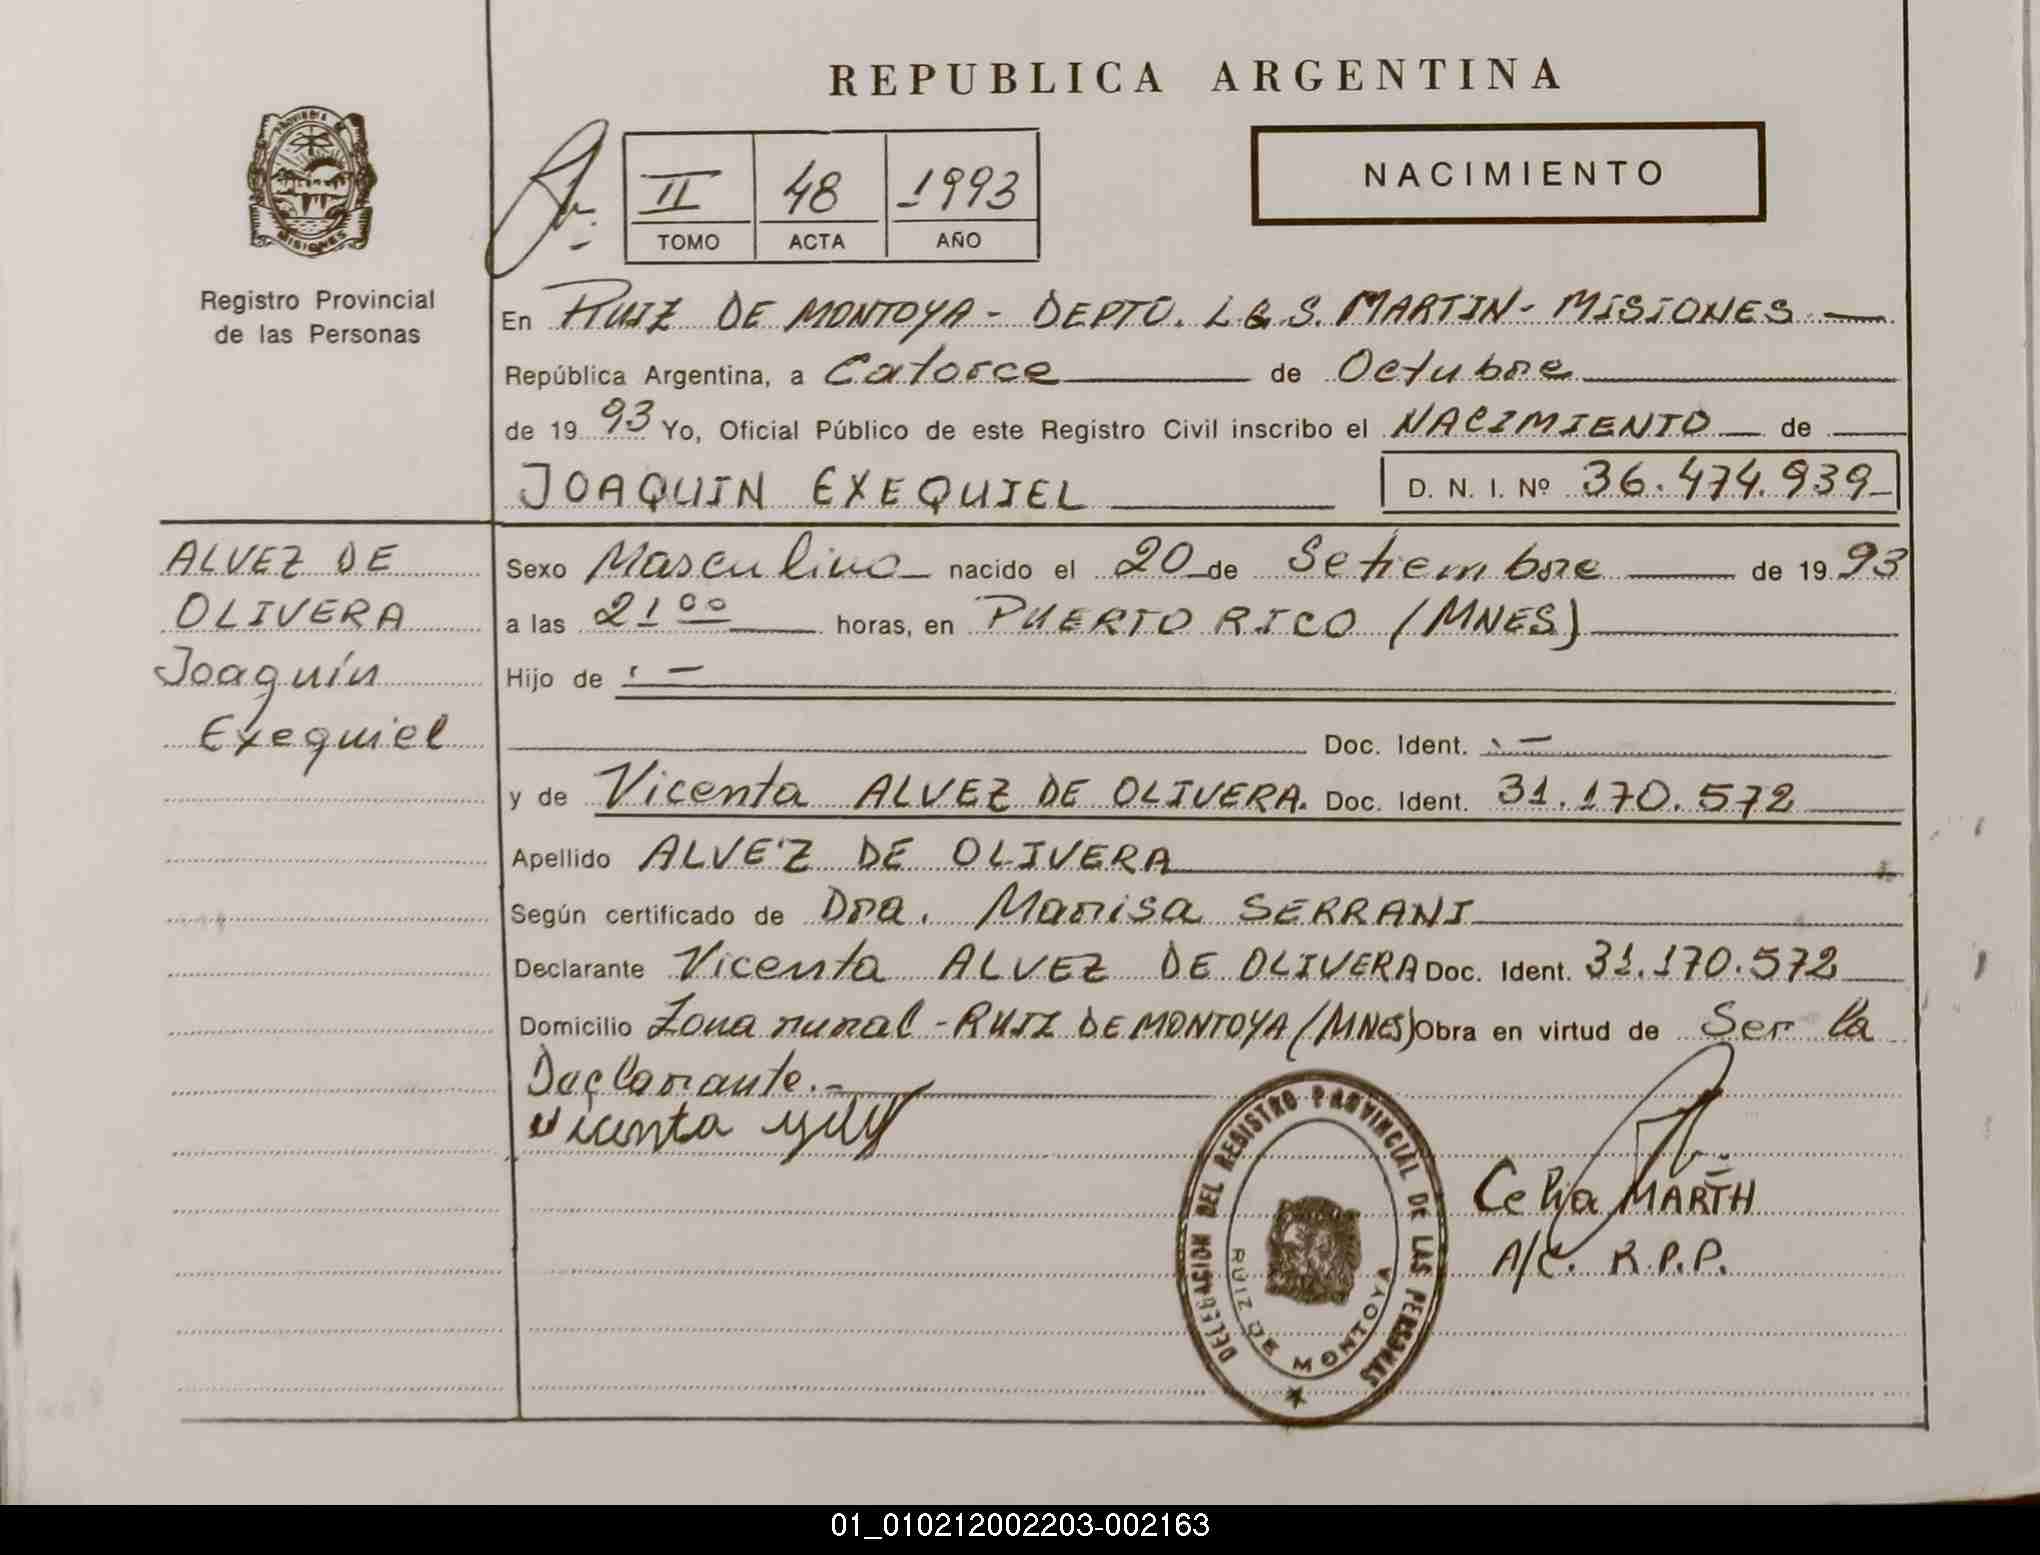 REPUBLICA ARGENTINA
PROVINCIA DE MISIONES
Registro Provincial
de las Personas
II 48 1993
TOMO ACTA AÑO
NACIMIENTO
En RUIZ DE MONTOYA - DEPTO. L.G.S. MARTIN - MISIONES
República Argentina, a Catorce de Octubre
de 1993 Yo, Oficial Público de este Registro Civil inscribo el NACIMIENTO de
JOAQUIN EXEQUIEL D. N. I. Nº 36.474.939
ALVEZ DE
OLIVERA
Joaquín
Exequiel
Sexo Masculino nacido el 20 de Setiembre de 1993
a las 21 00 horas, en PUERTO RICO (MNES)
Hijo de . -
Doc. Ident. . -
y de Vicenta ALVEZ DE OLIVERA. Doc. Ident. 31.170.572
Apellido ALVEZ DE OLIVERA
Según certificado de Dra. Marisa SERRANI
Declarante Vicenta ALVEZ DE OLIVERA Doc. Ident. 31.170.572
Domicilio Zona rural - RUIZ DE MONTOYA (MNES) Obra en virtud de Ser la
Declarante.-
Vicenta
DELEGACION DEL REGISTRO PROVINCIAL DE LAS PERSONAS
RUIZ DE MONTOYA
Celia MARTH
A/C. R.P.P.
01_010212002203-002163